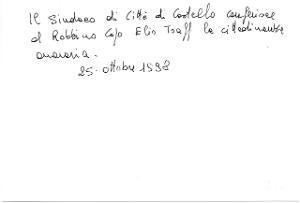 Il Sindaco di Città di Castello conferisce
al Rabbino Capo Elio Toaff la cittadinanza
onoraria.
25 ottobre 1998